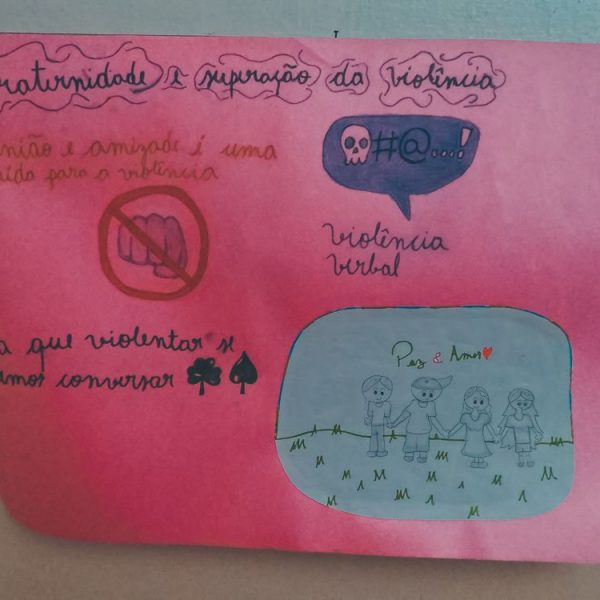 raternidade e superação da violência
nião e amizade é uma
aída para a violência
#@...!
violência
verbal
a que violentar se
amos conversar
Paz & Amor